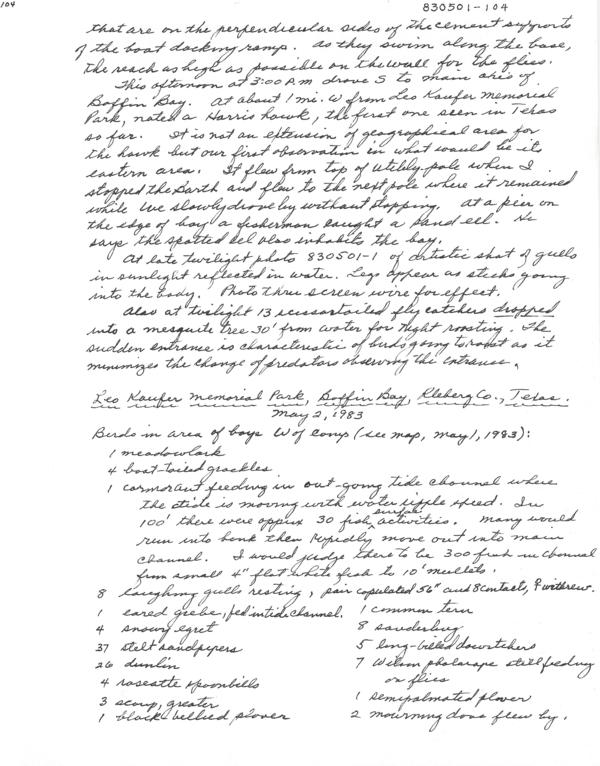 104
830501-104
that are on the perpendicular sides of the cement supports
of the boat docking ramp. As they swim along the base,
the reach as high as possible on the wall for the flies.
This afternoon at 3:00 PM drove S to main area of
Boffin Bay. At about 1 mi. W from Leo Kaufer Memorial
Park, noted a Harris hawk, the first one seen in Texas
so far. It is not an extension of geographical area for
the hawk but our first observation in what would be its
eastern area. It flew from top of utility pole when I
stopped the Barth and flew to the next pole where it remained
while we slowly drove by without stopping. At a pier on
the edge of bay a fisherman caught a sand eel. He
says the spotted eel also inhabits the bay.
At late twilight photo 830501-1 of artistic shot of gulls
in sunlight reflected in water. Legs appear as sticks going
into the body. Photo thru screen wire for effect.
Also at twilight 13 scissortailed flycatchers dropped
into a mesquite tree 30' from water for night roosting. The
sudden entrance is characteristic of birds going to roost as it
minimizes the change of predators observing the entrance.
Leo Kaufer Memorial Park, Boffin Bay, Kleberg Co., Texas.
May 2, 1983
Birds in area of bays W of camp (see map, May 1, 1983):
1 meadowlark
4 boat-tailed grackles
1 cormorant feeding in out-going tide channel where
the tide is moving with water ripple speed. In
100' there were approx 30 fish surface activities. Many would
run into bank then rapidly move out into main
channel. I would judge there to be 300 fish in channel
from small 4" flat white fish to 10" mullets.
8 laughing gulls resting, pair copulated 56" and 8 contacts, ♀ withdrew.
1 eared grebe, fed in tide channel.
4 snowy egret
37 stilt sandpipers
26 dunlin
4 roseatte spoonbills
3 scaup, greater
1 black bellied plover
1 common tern
8 sanderling
5 long-billed dowitchers
7 Wilson phalarope still feeding
on flies
1 semipalmated plover
2 mourning dove flew by.